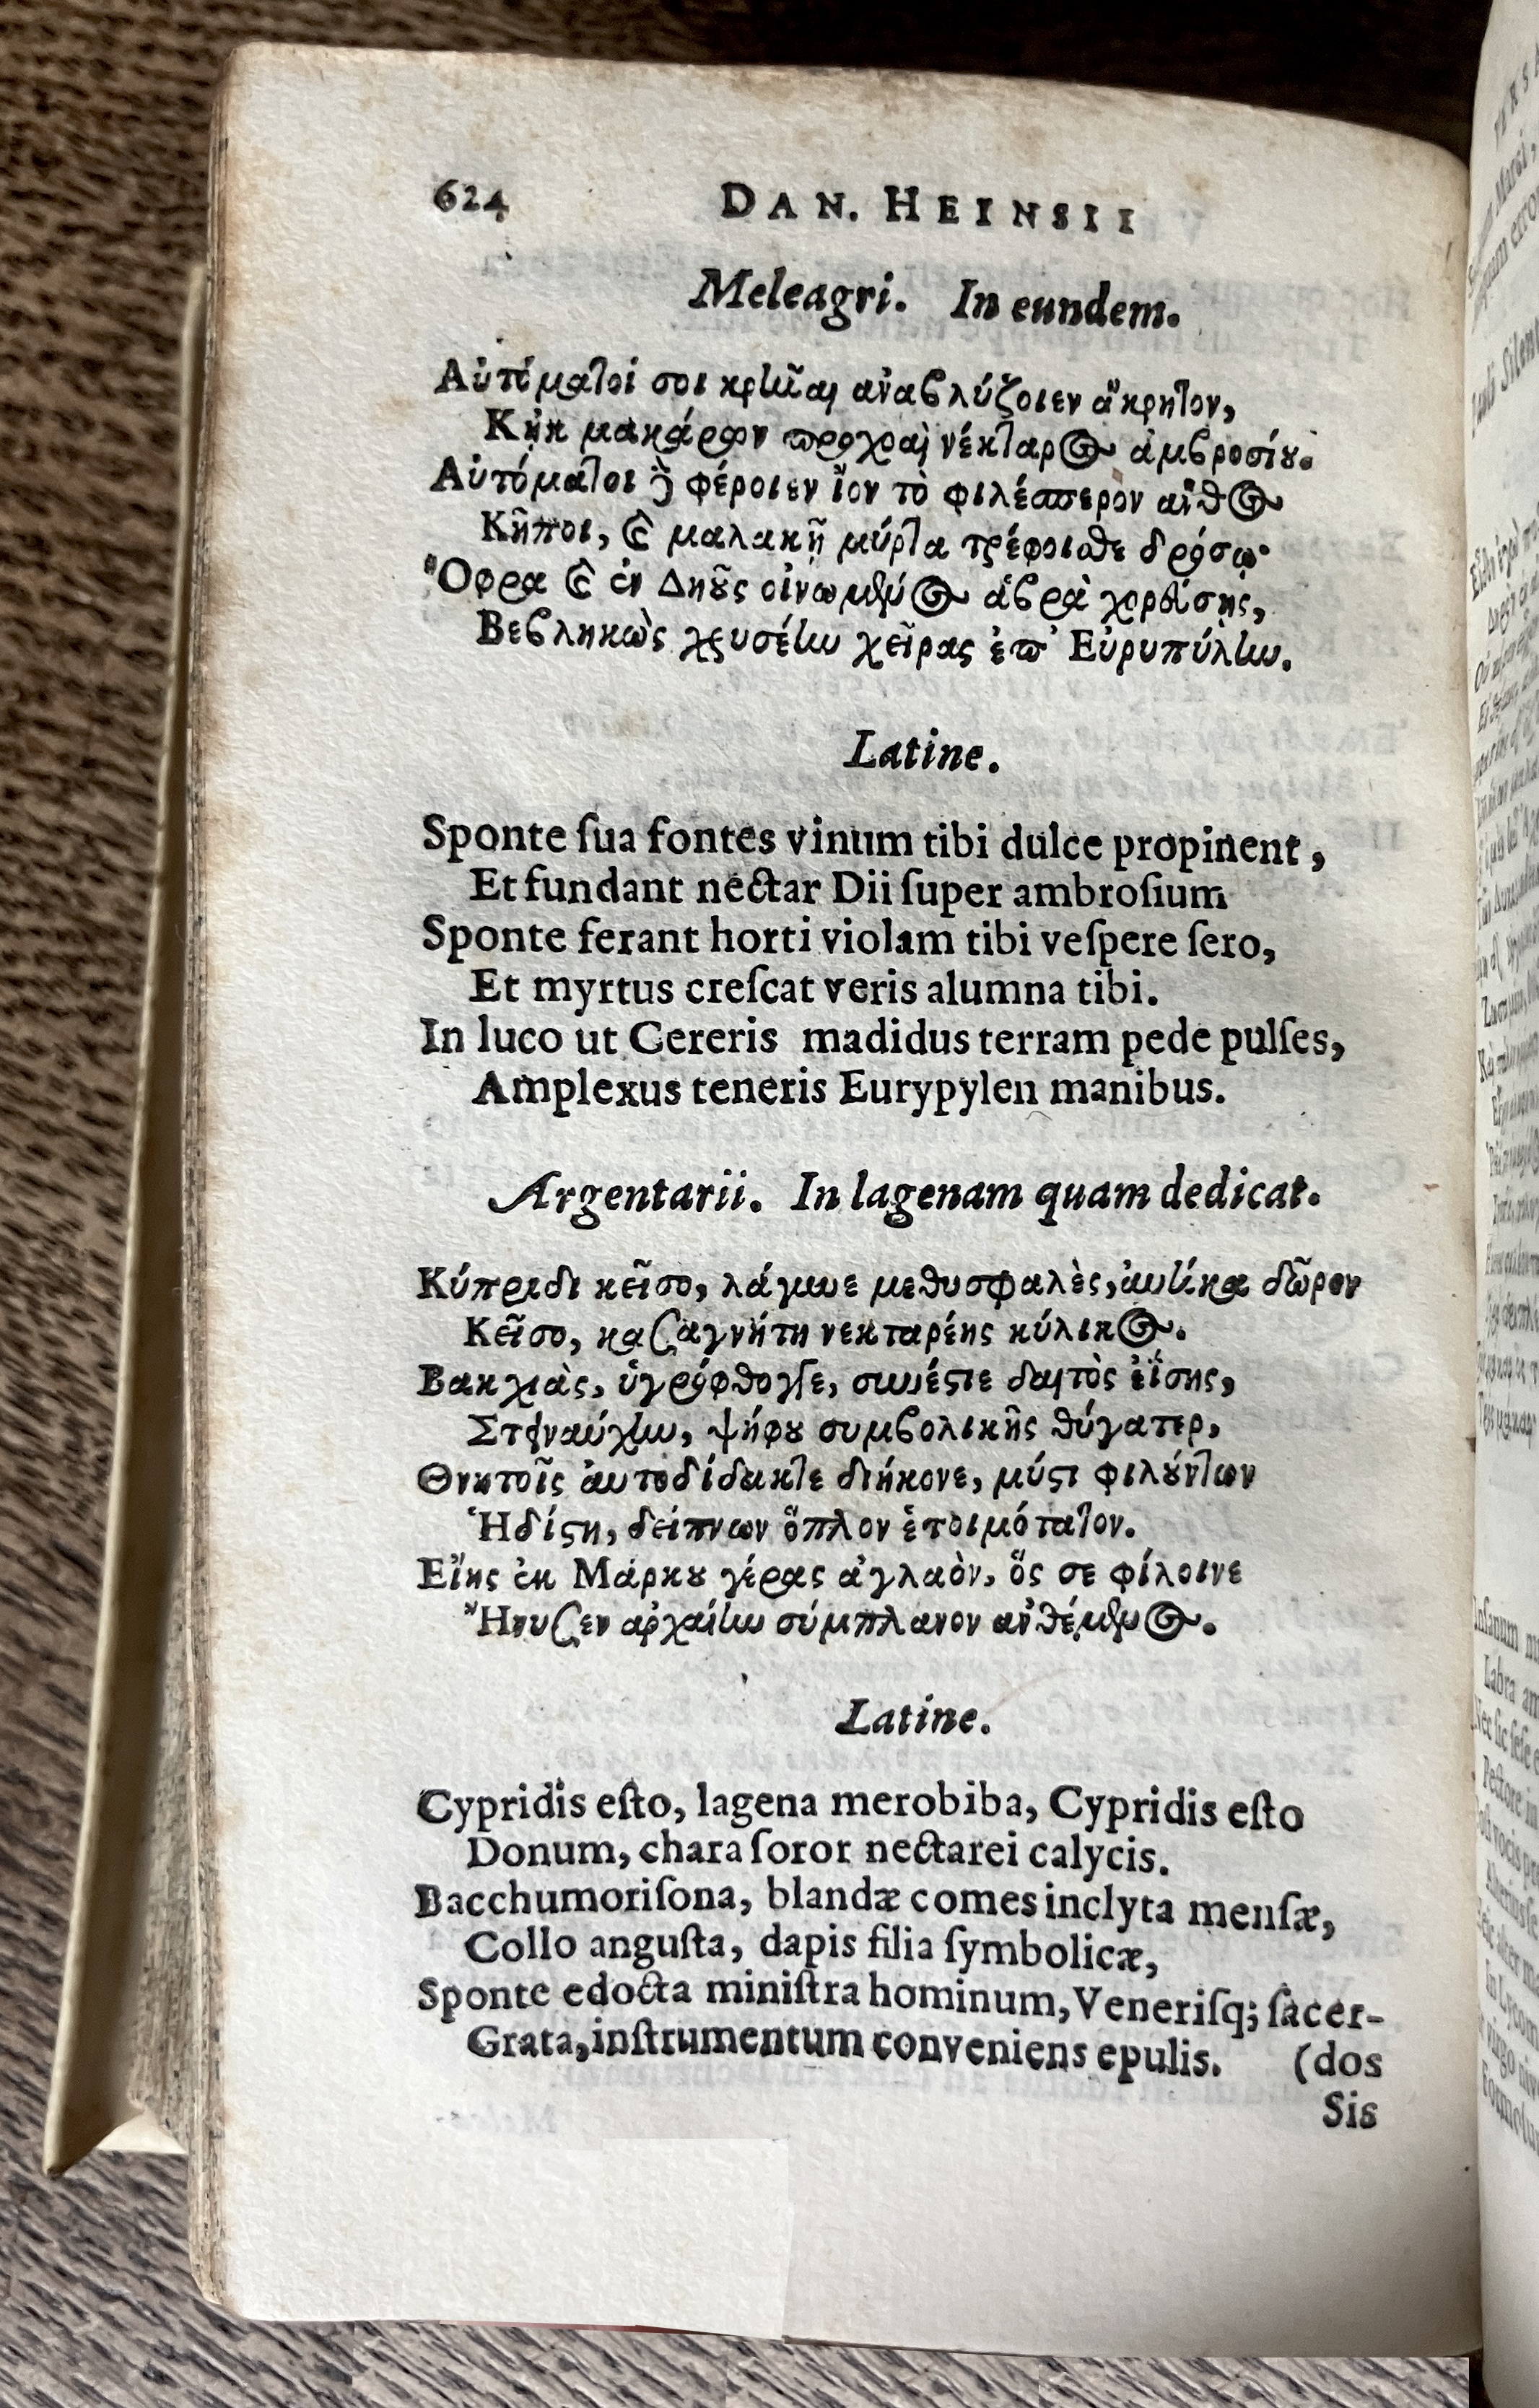 624 DAN. HEINSII
Meleagri. In eundem.
Αὐτόματοί σοι κρῆναι ἀναβλύζοιεν ἄκρητον,
Κἠκ μακάρων προχοαὶ νέκταρος ἀμβροσίου.
Αὐτόματοι δὲ φέροιεν ἴον τὸ φιλέσπερον ἄνθος
Κῆποι, καὶ μαλακῇ μύρτα τρέφοισθε δρόσῳ·
Ὄφρα καὶ ἐν Δηοῦς οἰνωμένος ἁβρὰ χορεύσης,
Βεβληκὼς χρυσέην χεῖρας ἐπ' Εὐρυπύλην.
Latine.
Sponte ſua fontes vinum tibi dulce propinent,
Et fundant nectar Dii ſuper ambroſium
Sponte ferant horti violam tibi veſpere ſero,
Et myrtus creſcat veris alumna tibi.
In luco ut Cereris madidus terram pede pulſes,
Amplexus teneris Eurypylen manibus.
Argentarii. In lagenam quam dedicat.
Κύπριδι κεῖσο, λάγυνε μεθυσφαλὲς, αὐτίκα δῶρον
Κεῖσο, κασιγνήτη νεκταρέης κύλικος.
Βακχιὰς, ὑγρόφθογγε, συνέστιε δαιτὸς ἐΐσης,
Στειναύχην, ψήφου συμβολικῆς θύγατερ,
Θνητοῖς αὐτοδίδακτε διήκονε, μύστι φιλούντων
Ἡδίστη, δείπνων ὅπλον ἑτοιμότατον.
Εἴης ἐκ Μάρκου γέρας ἀγλαὸν, ὅς σε φίλοινε
Ἤνυσεν ἀρχαίην σύμπλανον ἀνθέμενος.
Latine.
Cypridis eſto, lagena merobiba, Cypridis eſto
Donum, chara ſoror nectarei calycis.
Bacchumoriſona, blandæ comes inclyta menſæ,
Collo anguſta, dapis filia ſymbolicæ,
Sponte edocta miniſtra hominum, Veneriſq; ſacer-
Grata, inſtrumentum conveniens epulis. (dos
Sis